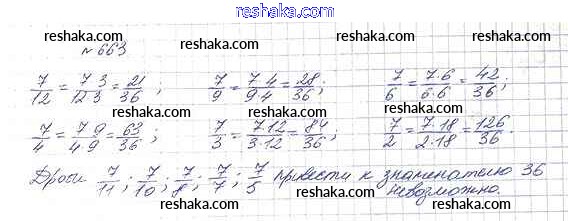 reshaka.com
reshaka.com reshaka.com reshaka.com
№663
7/12 = 7 3/12 3 = 21/36 ; 7/9 = 7 4/9 4 = 28/36 ; 7/6 = 7·6/6·6 = 42/36 ;
reshaka.com reshaka.com reshaka.com
7/4 = 7 9/4 9 = 63/36 ; 7/3 = 7·12/3·12 = 84/36 ; 7/2 = 7·18/2·18 = 126/36 .
reshaka.com reshaka.com reshaka.com
Дроби 7/11 ; 7/10 ; 7/8 ; 7/7 ; 7/5 привести к знаменателю 36
невозможно.
reshaka.com reshaka.com reshaka.com